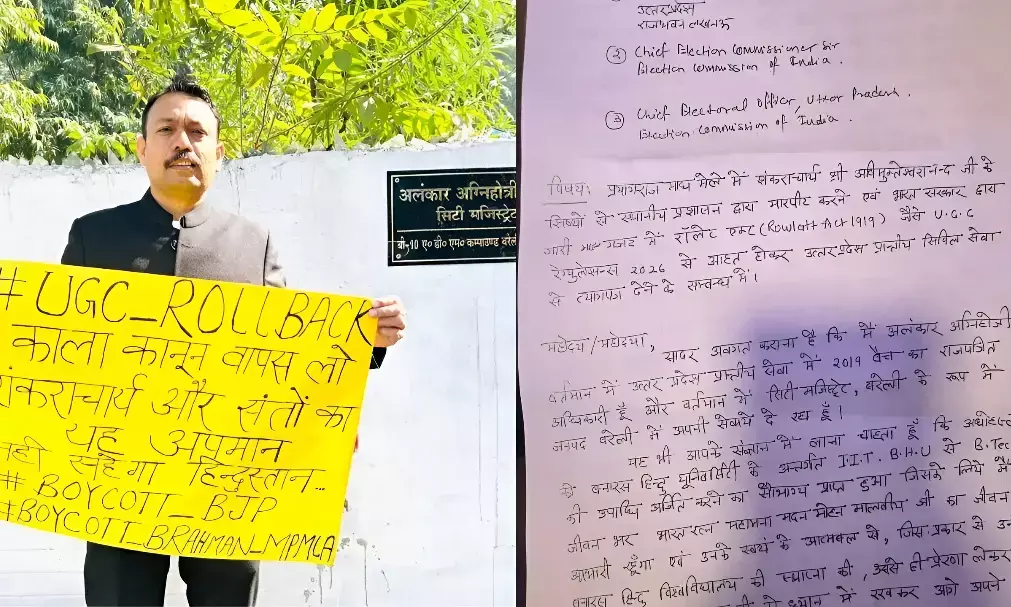 अलंकार अग्निहोत्री
सिटी मजिस्ट्रेट
बी-10 ए० डी० एम० कम्पाउण्ड बरेली
#UGC_ROLLBACK
काला कानून वापस लो
शंकराचार्य और संतों का
यह अपमान
नहीं सहेगा हिन्दुस्तान...
#BOYCOTT_BJP
#BOYCOTT_BRAHMAN_MPMLA
उत्तर प्रदेश
राजभवन लखनऊ
② Chief Election Commissioner Sir
Election Commission of India.
③ Chief Electoral Officer, Uttar Pradesh.
Election Commission of India.
विषय: प्रयागराज माघ मेले में शंकराचार्य श्री अविमुक्तेश्वरानन्द जी के
शिष्यों से स्थानीय प्रशासन द्वारा मारपीट करने एवं भारत सरकार द्वारा
जारी गजट में रॉलेट एक्ट (Rowlatt Act 1919) जैसे U.G.C
रेगुलेसन्स 2026 से आहत होकर उत्तर प्रदेश प्रान्तीय सिविल सेवा
से त्यागपत्र देने के सम्बन्ध में।
महोदय/महोदया,
सादर अवगत कराना है कि मैं अलंकार अग्निहोत्री
वर्तमान में उत्तर प्रदेश प्रान्तीय सेवा में 2019 बैच का राजपत्रित
अधिकारी हूँ और वर्तमान में सिटी मजिस्ट्रेट, बरेली के रूप में
जनपद बरेली में अपनी सेवायें दे रहा हूँ।
यह भी आपके संज्ञान में लाना चाहता हूँ कि
को बनारस हिन्दू यूनिवर्सिटी के अन्तर्गत I.I.T. B.H.U से B.Tec
की उपाधि अर्जित करने का सौभाग्य प्राप्त हुआ जिसके लिये मैं
जीवन भर भारत रत्न महामना मदन मोहन मालवीय जी का जीवन
आभारी रहूँगा एवं उनके स्वयं के आत्मबल से, जिस प्रकार से
बनारस हिन्दू विश्वविद्यालय की स्थापना की, उससे ही प्रेरणा लेकर
ध्यान में रखकर आगे अपने